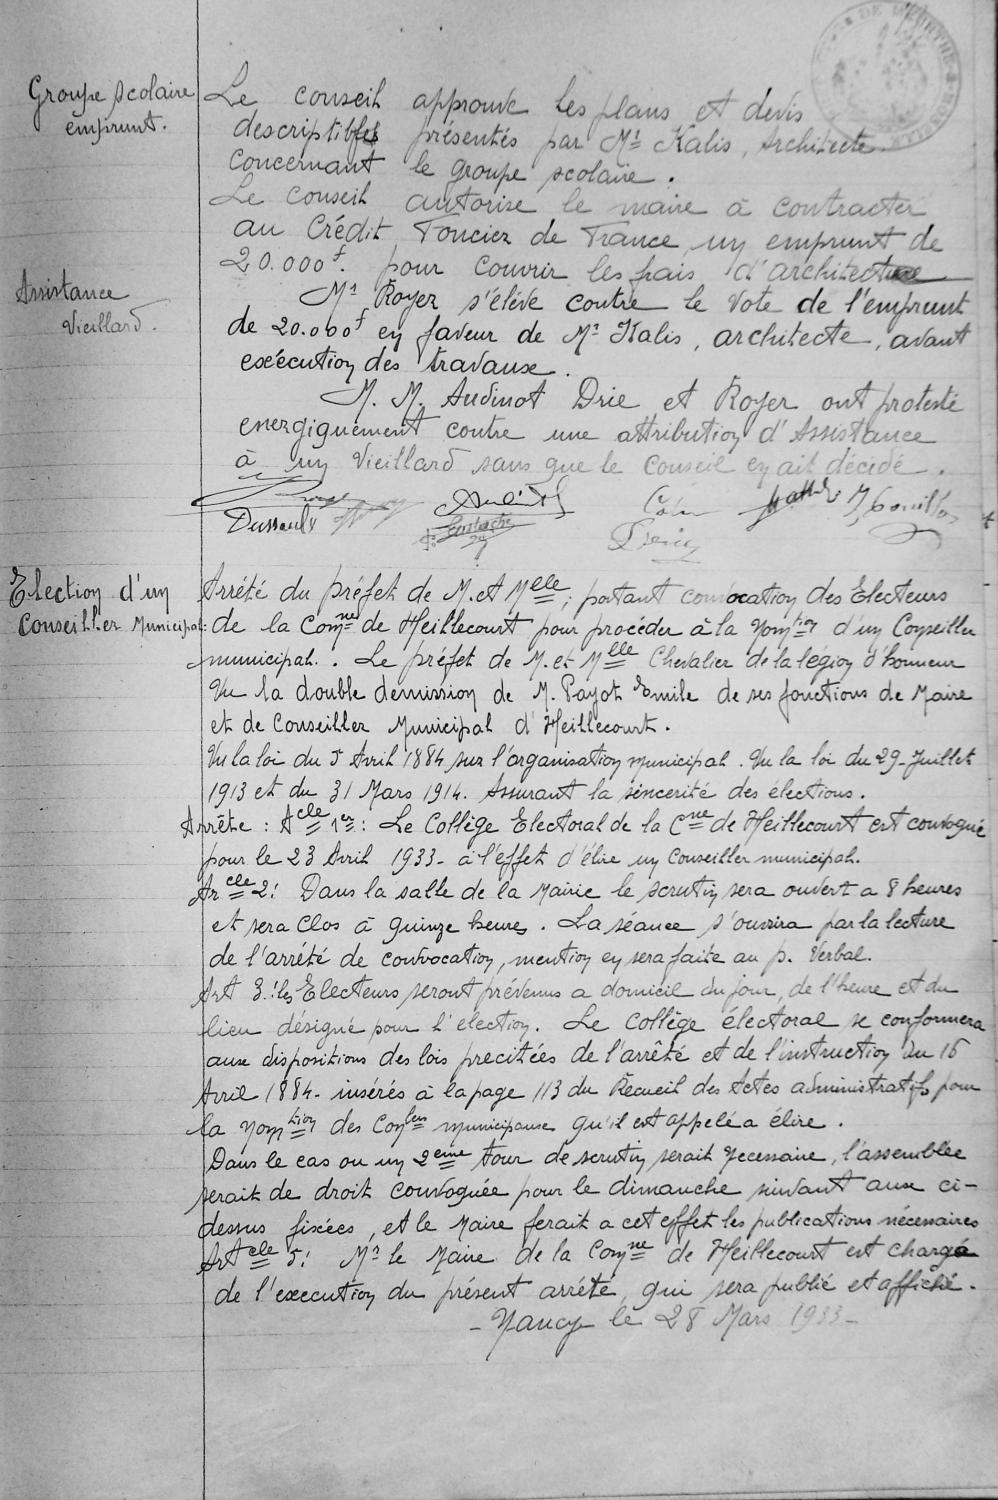 Groupe scolaire
emprunt.
Le conseil approuve les plans et devis
descriptifs présentés par Mr Kalis, Architecte
concernant le groupe scolaire.
Le conseil autorise le maire à contracter
au Crédit Foncier de France un emprunt de
20.000f. pour couvrir les frais d'architecture
Assistance
Vieillard.
Mr Royer s'élève contre le vote de l'emprunt
de 20.000f en faveur de Mr Kalis, architecte, avant
exéecution des travaux.
M. M. Audinot Drie et Royer ont protesté
energiquement contre une attribution d'Assistance
à un Vieillard sans que le Conseil en ait décidé.
Audinot Colin
Dussaulx Eustache
Election d'un
Conseiller Municipal:
Arrété du préfet de M. et Melle; portant convocation des Electeurs
de la Comne de Heillecourt pour procéder à la Nomtion d'un Conseiller
municipal. . Le préfet de M. et Melle Chevalier de la légion d'honneur
Vu la double demission de M. Payot Emile de ses fonctions de Maire
et de Conseiller Municipal d'Heillecourt.
Vu la loi du 5 Avril 1884 sur l'organisation municipal. Vu la loi du 29-Juillet
1913 et du 31 Mars 1914. Assurant la sincerité des élections.
Arrête: Acle 1er: Le Collège Electoral de la Cne de Heillecourt est convoqué
pour le 23 Avril 1933 - à l'effet d'élire un Conseiller municipal.
Arcle 2: Dans la salle de la Mairie le scrutin sera ouvert a 8 heures
et sera Clos à quinze heures. La séance s'ouvrira par la lecture
de l'arrété de convocation, mention en sera faite au p. Verbal.
Art 3: les Electeurs seront prévenus a domicil du jour, de l'heure et du
lieu désigné pour l'election. Le Collège électoral se conformera
aux dispositions des lois precitées de l'arrêté et de l'instruction du 16
Avril 1884 - insérés à la page 113 du Recueil des Actes administratifs, pour
la Nomtion des Conlers municipaux qu'il est appelé a élire.
Dans le cas ou un 2eme tour de scrutin serait Necessaire, l'assemblée
serait de droit Convoquée pour le dimanche suivant aux ci-
dessus fixées, et le Maire ferait a cet effet les publications nécessaires
Artcle 5: Mr le Maire de la Comne de Heillecourt est chargé
de l'execution du présent arrété, qui sera publié et affiché.
- Nancy le 28 Mars 1933 -